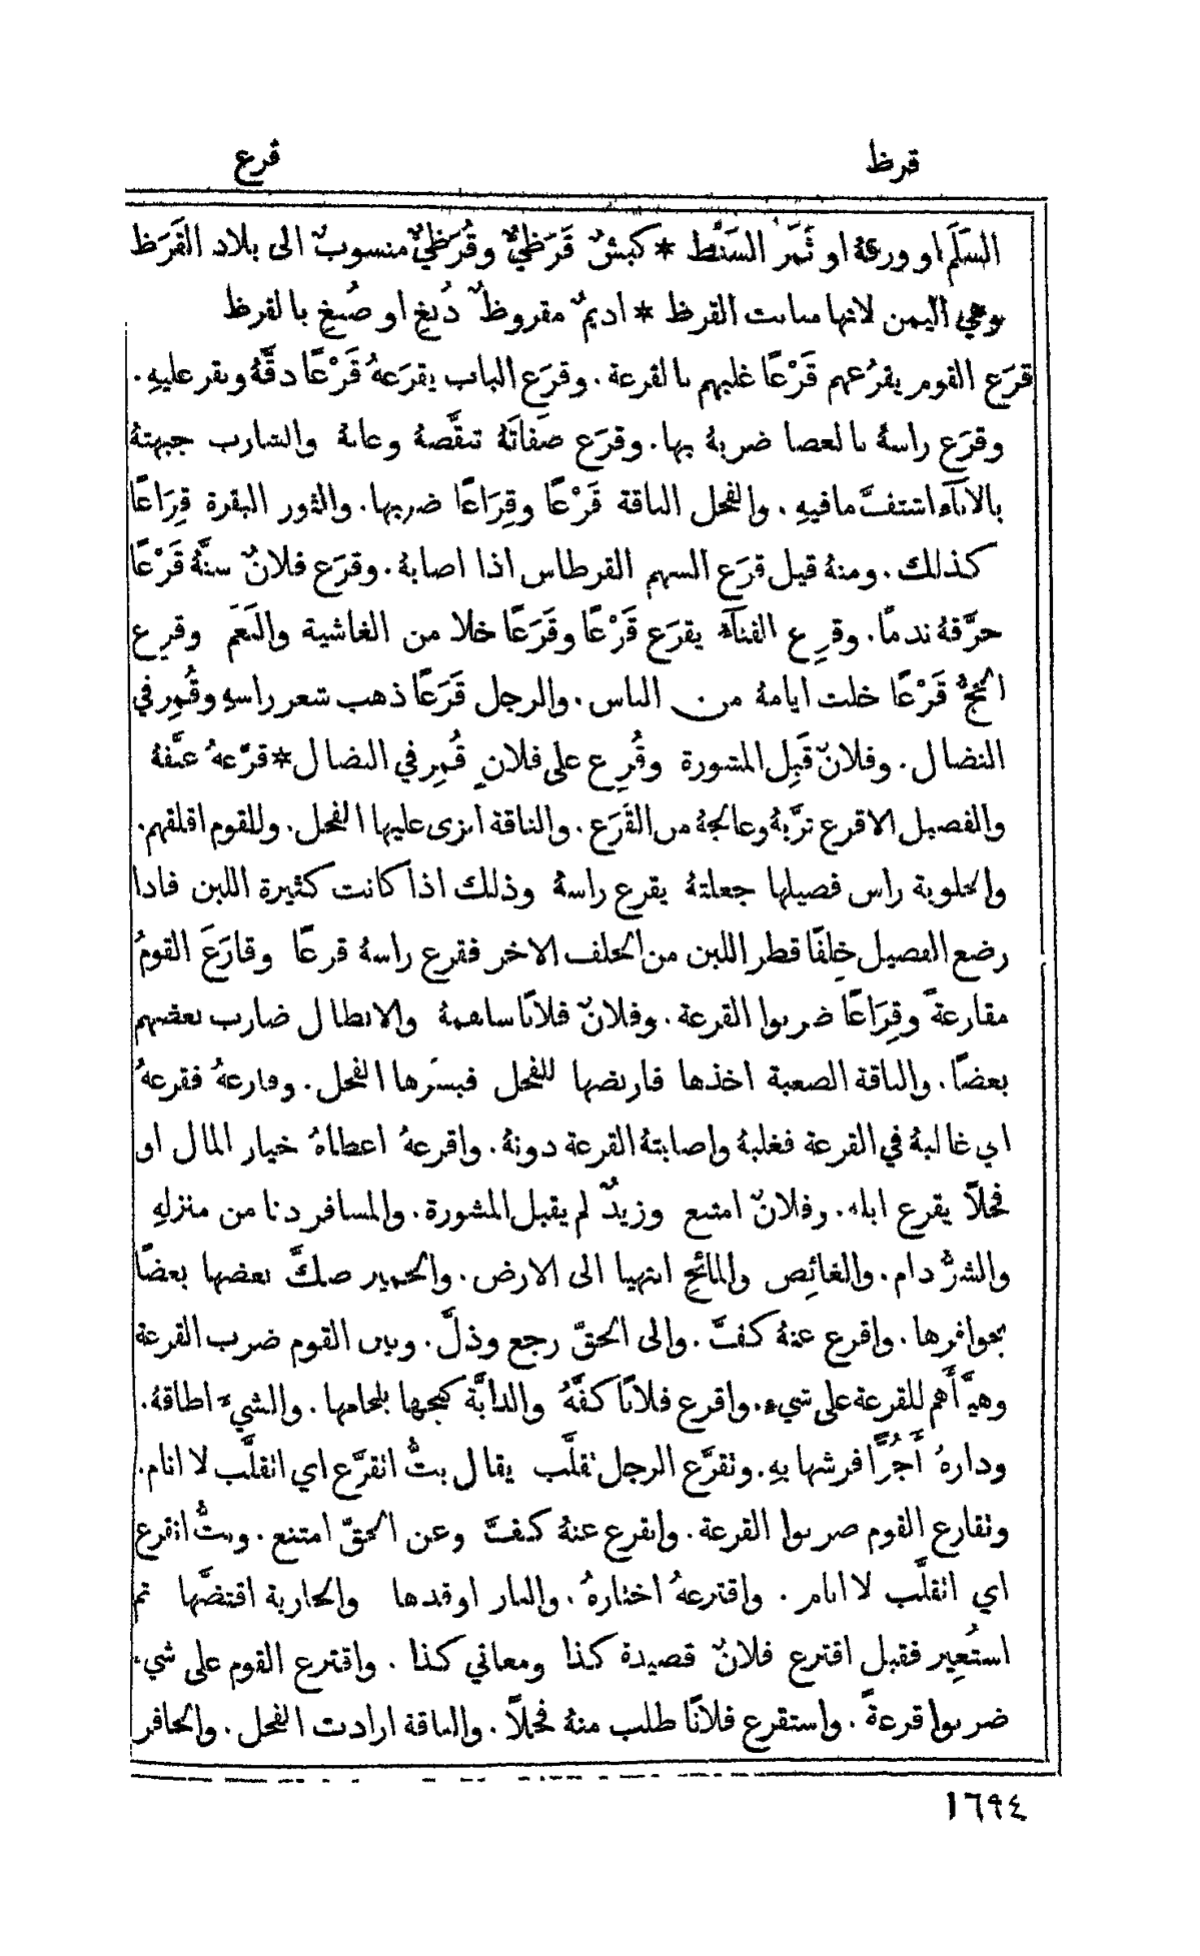 قرظ
قرع
السَلَم او ورقهُ او ثَمَر السَنْط * كبشٌ قَرَظيٌّ وقُرَظيٌّ منسوبٌ الى بلاد القَرَظ
وهي اليمن لانها منابت القرظ * اديمٌ مقروظٌ دُبِغ او صُبِغ بالقرظ
قرَع القوم يقرُعهم قَرْعًا غلبهم بالقرعة . وقرَع الباب يقرَعهُ قَرْعًا دقَّهُ ونقر عليهِ .
وقرَع راسهُ بالعصا ضربهُ بها . وقرَع صَفاتَهُ تنقَّصهُ وعابهُ والشارب جبهتهُ
بالاناء اشتفَّ ما فيهِ . والفحل الناقة قَرْعًا وقِرَاعًا ضربها . والثور البقرة قِرَاعًا
كذلك . ومنهُ قيل قرَع السهم القرطاس اذا اصابهُ . وقرَع فلانٌ سنَّهُ قَرْعًا
حرَّقهُ ندمًا . وقرِع الفنآءُ يقرَع قَرْعًا وقَرَعًا خلا من الغاشية والنَعَم وقرِع
الحجُّ قَرْعًا خلت ايامهُ من الناس . والرجل قَرَعًا ذهب شعر راسهِ وقُمِر في
النضال . وفلانٌ قَبِل المشورة وقُرِع على فلانٍ قُمِر في النضال * قرَّعهُ عنَّفهُ
والفصيل الاقرع نزَّبهُ وعالجهُ من القَرَع . والناقة انزى عليها الفحل . وللقوم اقلقهم .
والحلوبة راس فصيلها جعلتهُ يقرع راسهُ وذلك اذا كانت كثيرة اللبن فاذا
رضع الفصيل خِلفًا قطر اللبن من الخلف الاخر فقرع راسهُ قرعًا وقارَعَ القومُ
مقارعةً وقِرَاعًا ضربوا القرعة . وفلانٌ فلانًا ساهمهُ والابطال ضارب بعضهم
بعضًا . والناقة الصعبة اخذها فاربضها للفحل فبسَرها الفحل . وقارعهُ فقرعهُ
اي غالبهُ في القرعة فغلبهُ واصابتهُ القرعة دونهُ . واقرعهُ اعطاهُ خيار المال او
فحلًا يقرع ابله . وفلانٌ امتنع وزيدٌ لم يقبل المشورة . والمسافر دنا من منزلهِ
والشرُّ دام . والغائِص والمائِح انتهيا الى الارض . والحمير صكَّ بعضها بعضًا
بحوافرها . واقرع عنهُ كفَّ . والى الحقّ رجع وذلَّ . وبين القوم ضرب القرعة
وهيَّأَهم للقرعة على شيء . واقرع فلانًا كفَّهُ والدابَّة كبحها بلجامها . والشيَّ اطاقهُ .
ودارهُ أَجُرًّا فرشها بهِ . وتقرَّع الرجل تقلَّب يقال بتُّ اتقرَّع اي اتقلَّب لا انام .
وتقارع القوم ضربوا القرعة . وانقرع عنهُ كفَّ وعن الحقّ امتنع . وبتُّ انقرع
اي اتقلَّب لا انام . واقترعهُ اختارهُ . والنار اوقدها والجارية اقتضَّها ثم
استُعِير فقيل اقترع فلانٌ قصيدة كذا ومعاني كذا . واقترع القوم على شيء
ضربوا قرعةً . واستقرع فلانًا طلب منهُ فحلًا . والناقة ارادت الفحل . والحافر
١٦٩٤